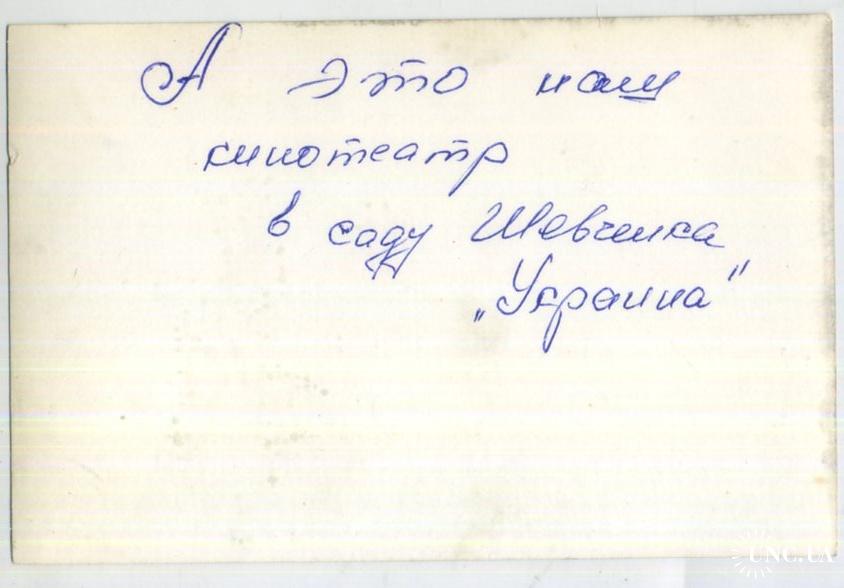 А это наш
кинотеатр
в саду Шевченка
„Украина"
UNC.UA